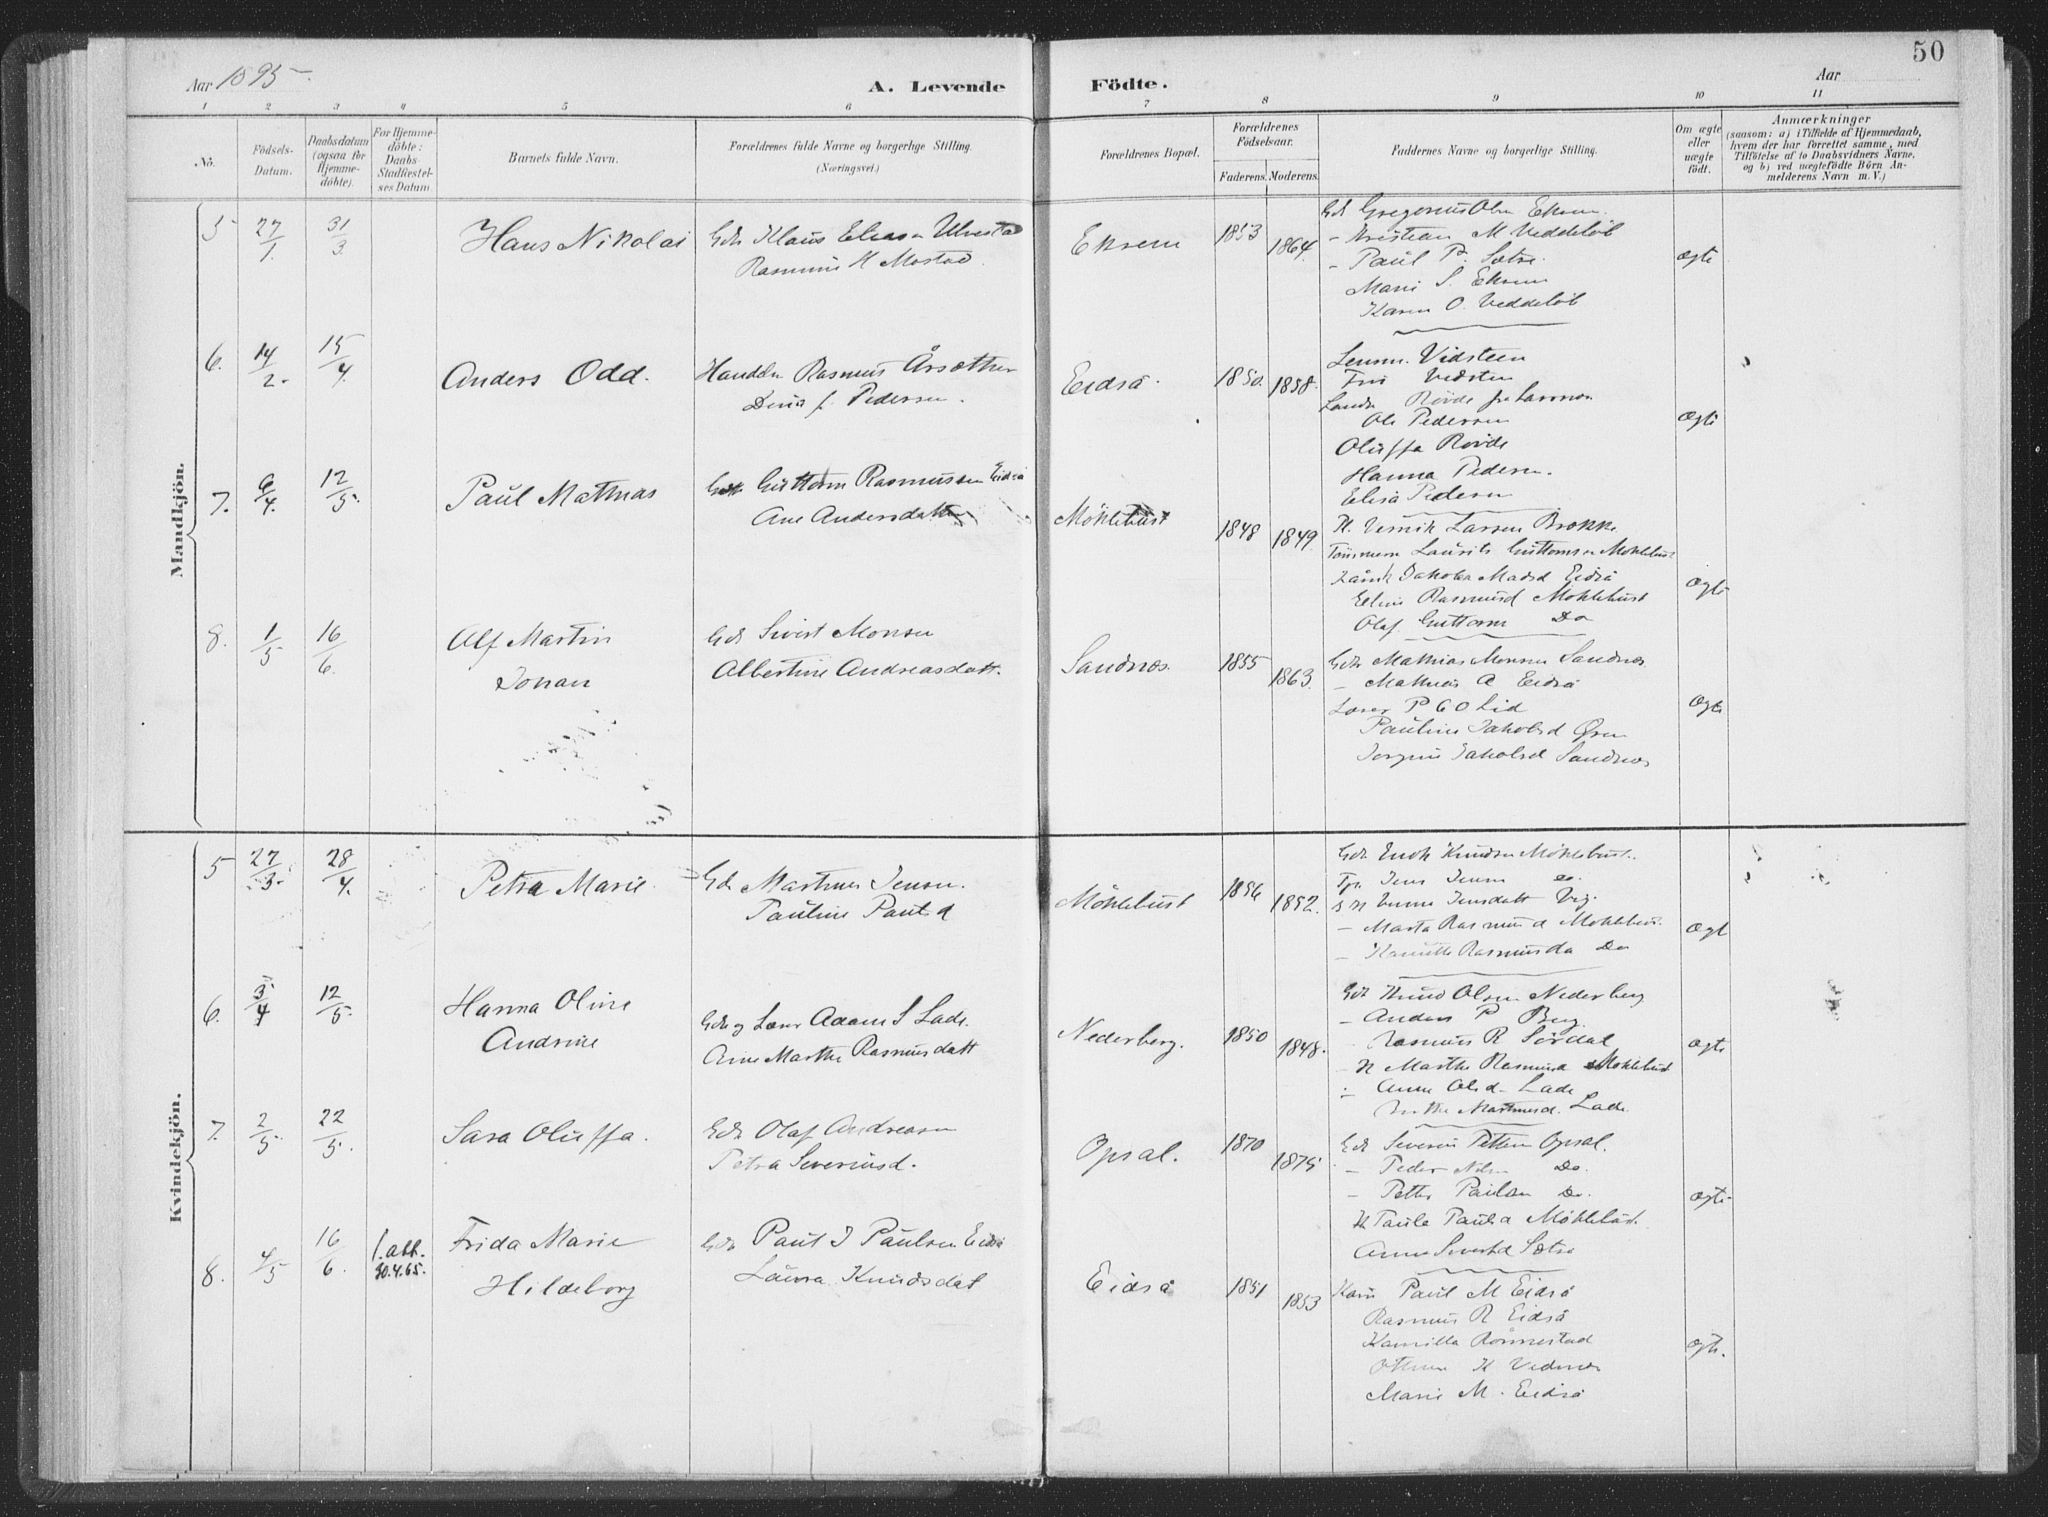 50
Aar 1895.
A. Levende
Födte.
Aar
1 2 3 4 5 6 7 8 9 10 11
No.
Födsels-Datum.
Daabsdatum (ogsaa for Hjemme-döbte).
For Hjemme-döbte: Daabs-Stadfæstelses Datum.
Barnets fulde Navn.
Forældrenes fulde Navne og borgerlige Stilling. (Næringsvei.)
Forældrenes Bopæl.
Forældrenes Födselsaar.
Faderens. Moderens.
Faddernes Navne og borgerlige Stilling.
Om ægte eller uægte födt.
Anmærkninger
(saasom: a) i Tilfælde af Hjemmedaab, hvem der har forrettet samme, med Tilföielse af to Daabsvidners Navne, og b) ved uægtefödte Börn Anmelderens Navn m. V.)
Mandkjön.
5 27/1 31/3 Hans Nikolai
Gdr Klaus Eliasen Ulvestad
Rasmine K Mostad
Eksem
1853 1864
Gdr Gregorius Olsen Eksem
- Kristian M Veddelöb
- Paul P. Sætre.
Marie S. Eksem
Karen O. Veddelöb
ægte
6. 14/2 15/4 Anders Odd.
Handln Rasmus Årsæther
Dina f. Pedersen.
Eidså.
1850. 1858.
Lensm. Vidsteen
Fru Vidsten
Rövde fra Larsnes
Ole Pedersen
Oluffa Rövde
Hanna Pedersen.
Elisa Pedersen
Ægte
7. 6/4 12/5 Paul Mathias
Guttorm Rasmussen Eidså
Ane Andersdatter
Möklebust
1848 1849
K. Larsen Brokke
Tömmerm Laurits Guttormsen Möklebust
Jakoba Madsd Eidså
Eline Rasmusd Möklebust
Olaf Guttorms Do
Ægte
8. 1/5 16/6 Alf Martin
Johan
Gdr Sivert Monsen
Albertine Andreasdatt.
Sandnes.
1855 1863.
Gdr Mathias Monsen Sandnes
- Mathias A Eidså
Lærer P G O Lid
Pauline Jakobsd Ören
Jörgine Jakobsd Sandnes
Ægte
Kvindekjön.
5 27/3 28/4 Petra Marie
Gdr Martinus Jensen.
Pauline Paulsd
Möklebust
1856 1852.
Gdr Enok Knudsen Möklebust.
Jens Jensen do.
Jensdatt Vig.
- Marta Rasmusd Möklebust.
- Rasmusda Do
Ægt
6. 3/4 12/5 Hanna Oline
Andrine
Gdr og Lærer Adam S Lade.
Ane Marthe Rasmusdatt
Nederberg.
1850 1848.
Gdr Knud Olsen Nederberg
- Anders P Berg
- Rasmus R Sördal
- K Marthe Rasmusd Möklebust
- Anne Olsd Lade
Martinusd. Lade
Ægte
7. 2/5 22/5. Sara Oluffa.
Gdr Olaf Andreasen
Petra Severinsd.
Opsal.
1870 1875
Gdr Severin Pettersen Opsal.
- Peder Nilsen Do.
- Petter Paulsen Do.
K Paula Paulsd Möklebust.
Anne Sivertsd Sætre
Ægte
8. 4/5 16/6. 1. att. 30.4.65. Frida Marie
Hildeborg
Gdr Paul J Paulsen Eidså
Laura Knudsdat
Eidså
1851 1853
Paul M Eidså
Rasmus R Eidså
Kamilla Rönnestad
K Vednes
Marie M. Eidså
ægte.